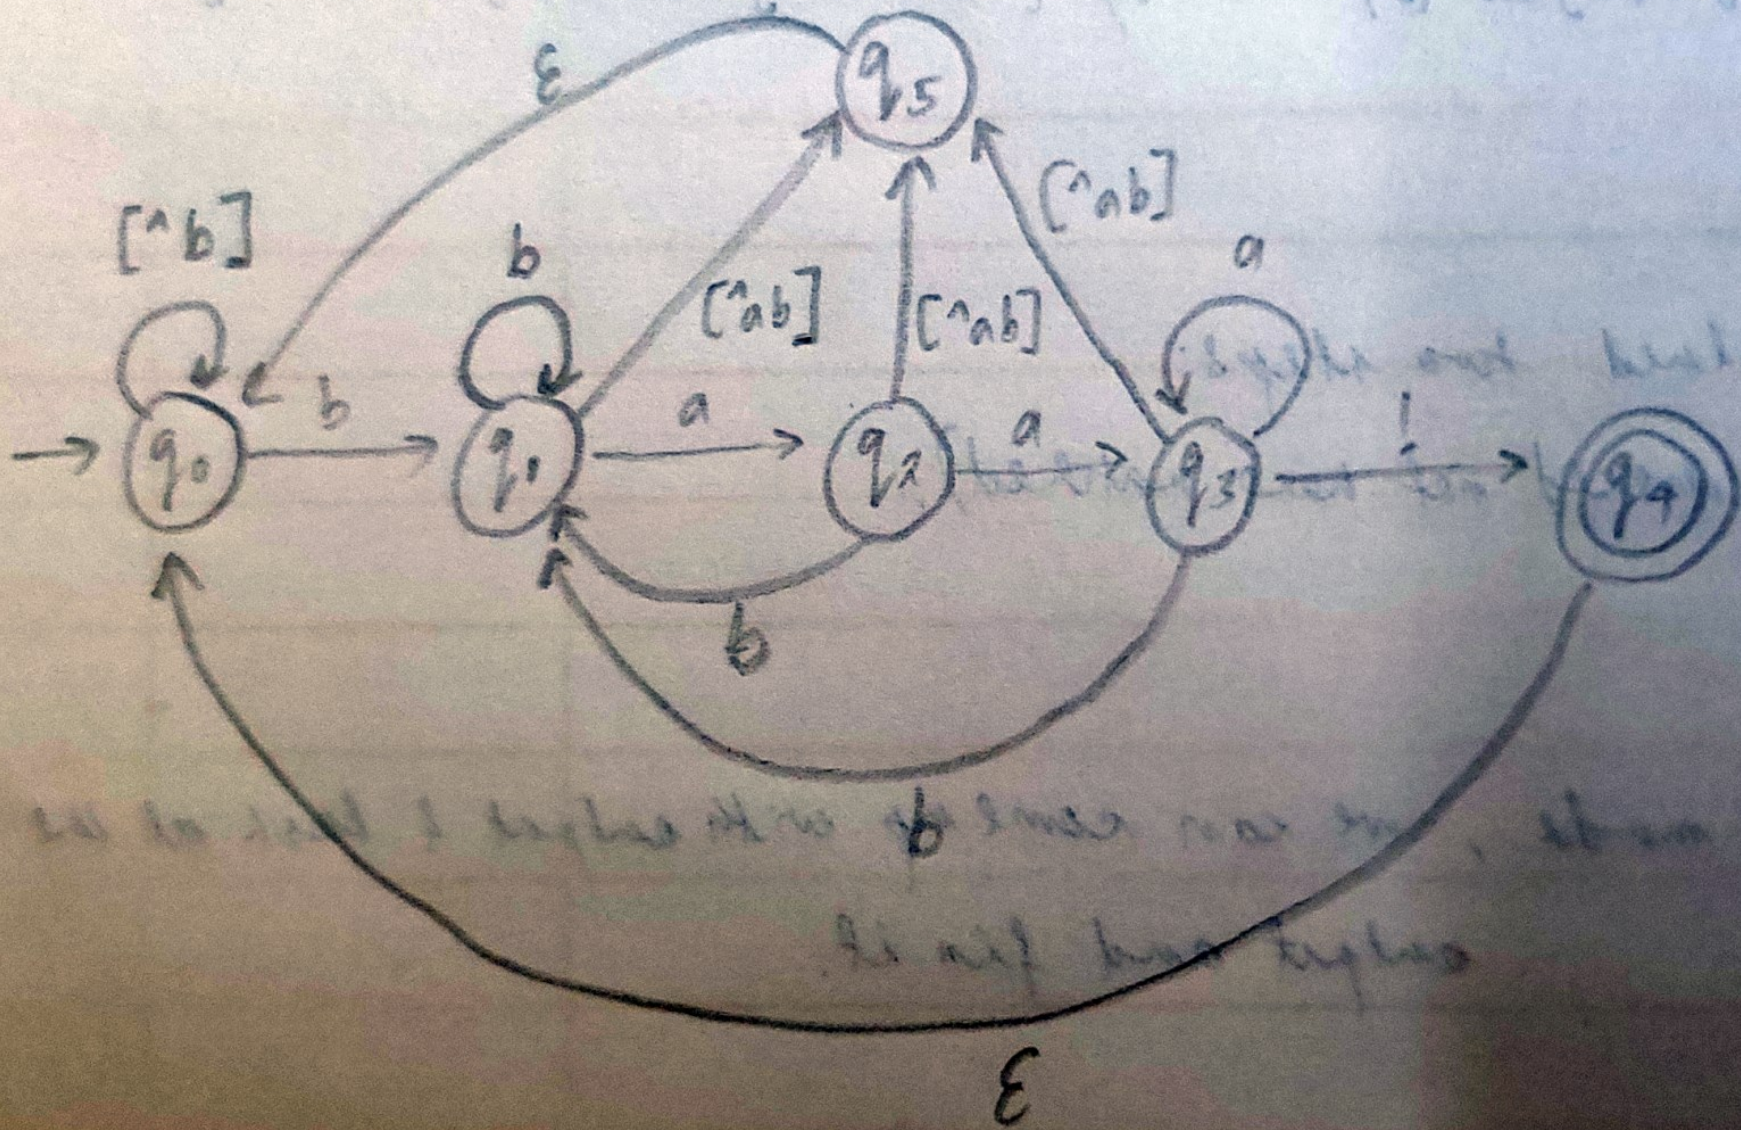 ε
q5
[^ab]
[^b]
b
a
[^ab]
[^ab]
b
a
a
!
q0
q1
q2
q3
q4
b
b
ε